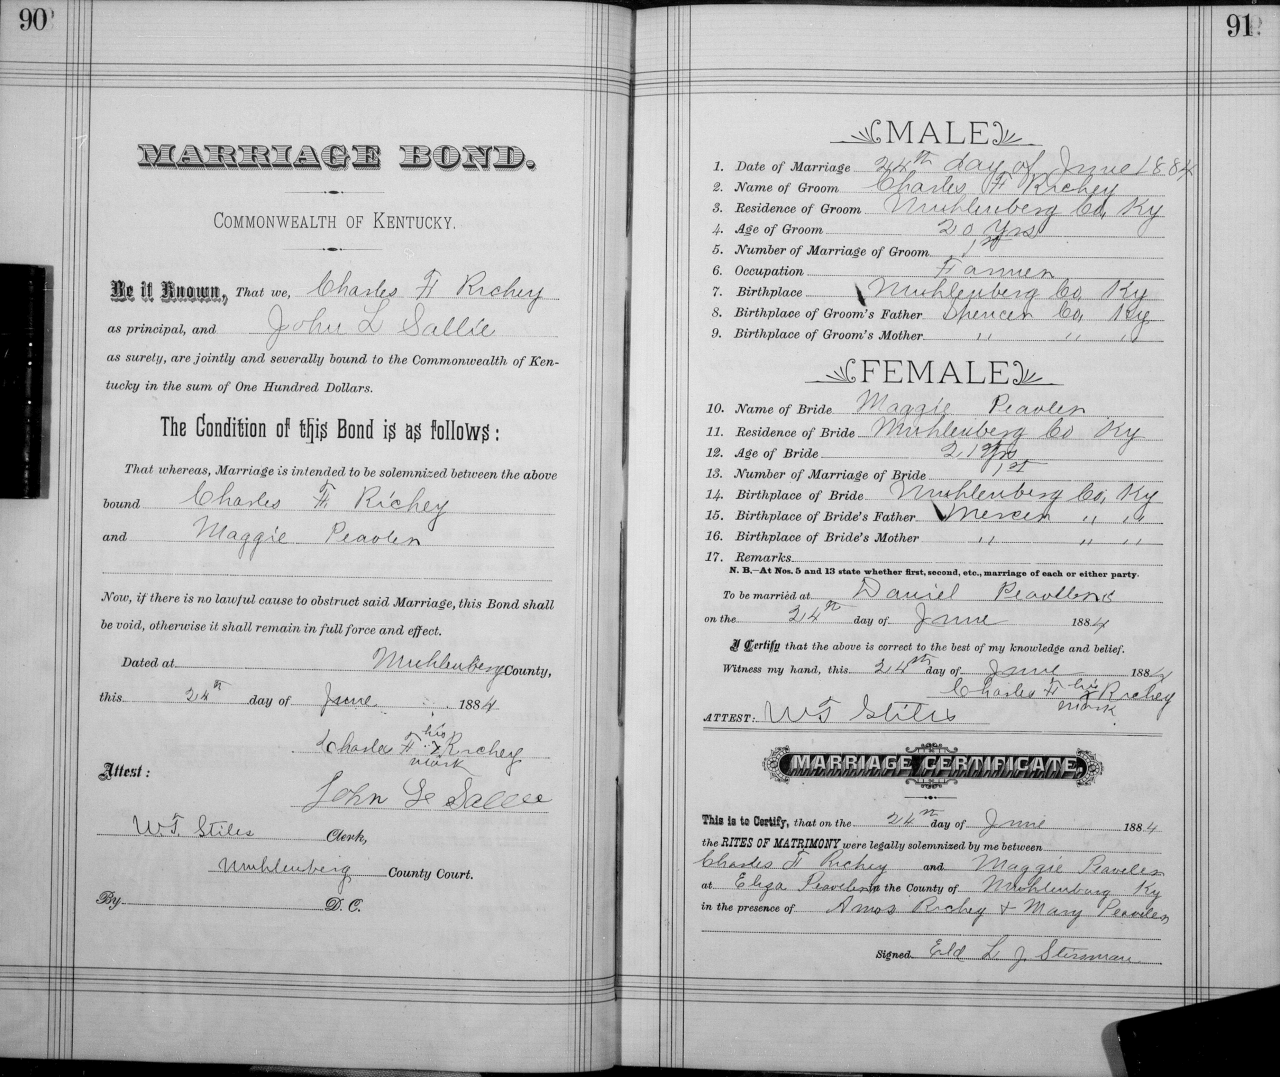 90
MARRIAGE BOND.
COMMONWEALTH OF KENTUCKY.
Be it Known, That we, Charles F Richey
as principal, and John L Sallie
as surety, are jointly and severally bound to the Commonwealth of Ken-
tucky in the sum of One Hundred Dollars.
The Condition of this Bond is as follows:
That whereas, Marriage is intended to be solemnized between the above
bound Charles F Richey
and Maggie Peavler
Now, if there is no lawful cause to obstruct said Marriage, this Bond shall
be void, otherwise it shall remain in full force and effect.
Dated at Muhlenberg County,
this 24th day of June 1884
Charles F his x mark Richey
Attest:
John L Sallee
WT Stiles Clerk,
Muhlenberg County Court.
By D. C.
91
MALE
1. Date of Marriage 24th day of June 1884
2. Name of Groom Charles F Richey
3. Residence of Groom Muhlenberg Co, Ky
4. Age of Groom 20 yrs
5. Number of Marriage of Groom 1st
6. Occupation Farmer
7. Birthplace Muhlenberg Co, Ky
8. Birthplace of Groom's Father Spencer Co, Ky
9. Birthplace of Groom's Mother " " "
FEMALE
10. Name of Bride Maggie Peavler
11. Residence of Bride Muhlenberg Co Ky
12. Age of Bride 21 yrs
13. Number of Marriage of Bride 1st
14. Birthplace of Bride Muhlenberg Co, Ky
15. Birthplace of Bride's Father Mercer " "
16. Birthplace of Bride's Mother " " "
17. Remarks
N. B.—At Nos. 5 and 13 state whether first, second, etc., marriage of each or either party.
To be married at Daniel Peavlers
on the 24th day of June 1884
I Certify that the above is correct to the best of my knowledge and belief.
Witness my hand, this 24th day of June 1884
Charles F his x mark Richey
ATTEST: WT Stiles
MARRIAGE CERTIFICATE,
This is to Certify, that on the 24th day of June 1884
the RITES OF MATRIMONY were legally solemnized by me between
Charles F Richey and Maggie Peavler
at Eliga Peavlers in the County of Muhlenburg Ky
in the presence of Amos Richey & Mary Peavler
Signed Eld L J Stirsman